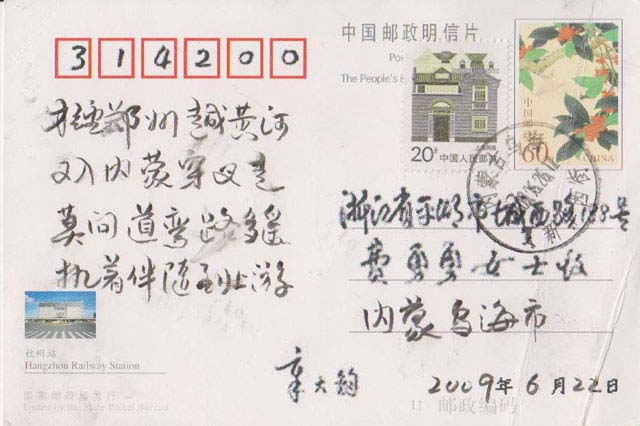 314200
中国邮政明信片
Po
The People's R
20分 中国人民邮政
上海民居
中国邮政
60分 CHINA
郑州越黄河
双入内蒙穿戈走
莫问道弯路多遥
执着伴随到北游
浙江省平湖市城西路188号
费勇勇女士收
内蒙乌海市
杭州站
Hangzhou Railway Station
国家邮政局发行
Issued by the State Postal Bureau
章大钧
2009年6月22日
11 邮政编码